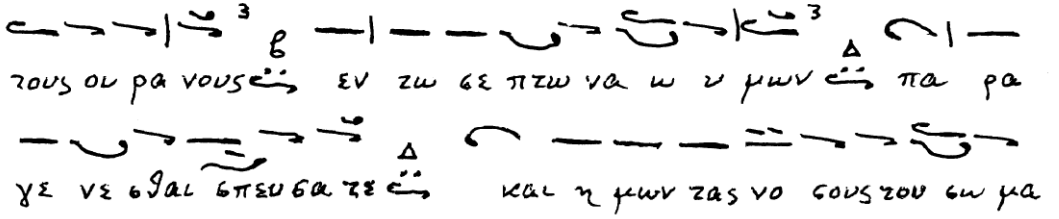 τους ου ρα νους β εν τω σε πτω να ω υ μων Δ πα ρα
γε νε σθαι σπευ σα τε Δ και η μων τας νο σους του σω μα